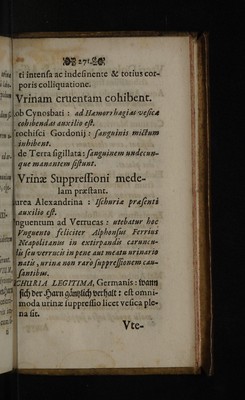 271.
ti intensa ac indesinente & totius cor-
poris colliquatione.
Vrinam cruentam cohibent.
ob Cynosbati : ad Hæmorrhagias vesicæ
cohibendas auxilio est.
rochisci Gordonij : sanguinis mictum
inhibent.
de Terra sigillata : sanguinem undecun-
que manentem sistunt.
Vrinæ Suppressioni mede-
lam præstant.
urea Alexandrina : Ischuria præsenti
auxilio est.
nguentum ad Verrucas : utebatur hoc
Vnguento feliciter Alphonsus Ferrius
Neapolitanus in extirpandis caruncu-
lis seu verrucis in pene aut meatu urinario
natis, urinæ non rarò suppressionem cau-
santibus.
CHURIA LEGITIMA, Germanis : wann
sich der Harn gäntzlich verhalt : est omni-
moda urinæ suppressio licet vesica ple-
na sit.
Vte-